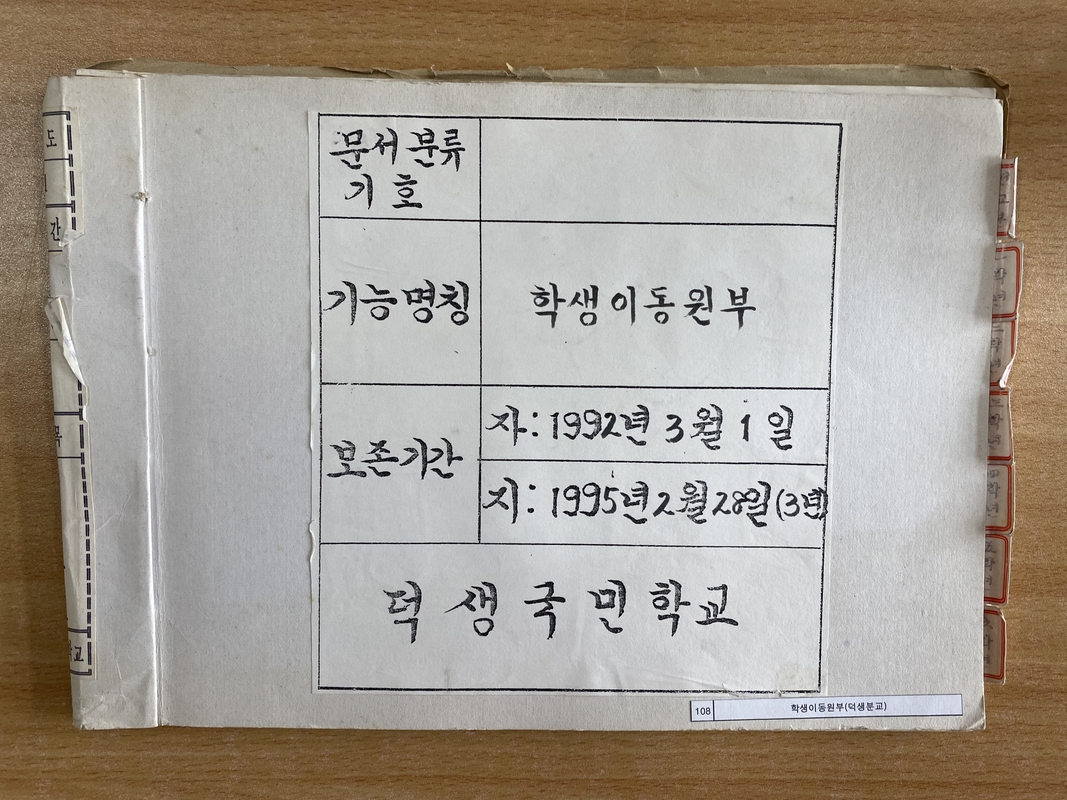 문서 분류
기 호
기능명칭
학생이동원부
보존기간
자: 1992년 3월 1일
지: 1995년 2월 28일(3년)
덕생국민학교
108
학생이동원부(덕생분교)
도
간
학교
학년
학년
학년
학년
학년
학년